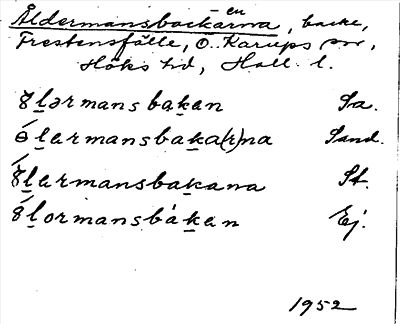 Åldermansbackarna, backe,
en
Frestensfälle, Ö. Karups sn,
Höks hd, Hall. l.
8lərmansbaken Sa.
ólarmansbaka(r)na Sand.
8larmansbakana St.
8lormansbáken Ej.
1952